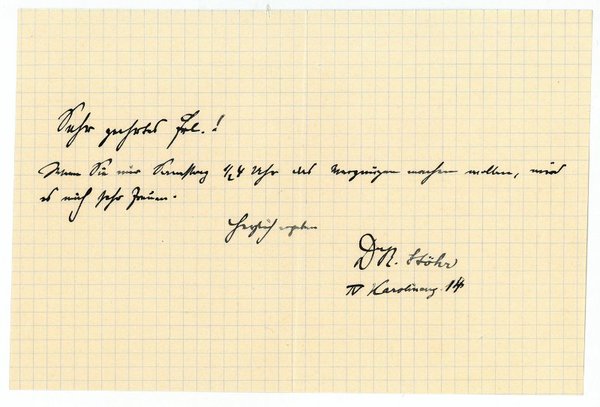 Sehr geehrtes Frl.!
Wenn Sie mir Samstag 1/2 4 Uhr das Vergnügen machen wollen, wird
es mich sehr freuen.
Herzlich ergeben
Dr R. Stöhr
IV Karolineng. 14